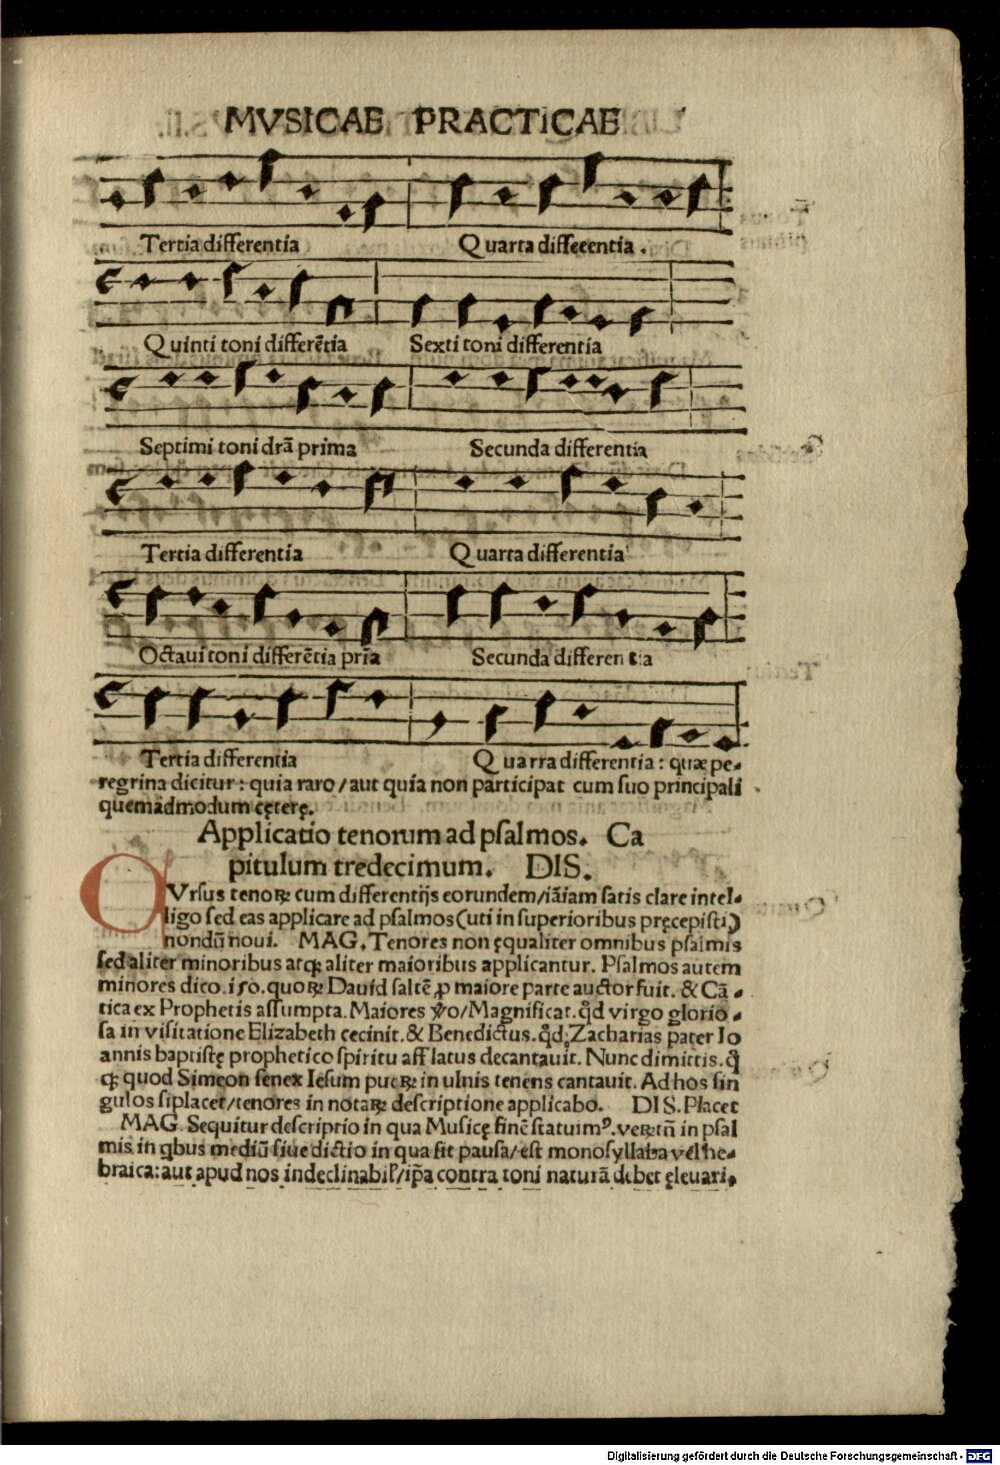 MVSICAE PRACTICAE
Tertia differentia Quarta differentia.
Quinti toni differētia Sexti toni differentia
Septimi toni drā prima Secunda differentia
Tertia differentia Quarta differentia
Octaui toni differētia pria Secunda differentia
Tertia differentia Quarra differentia: quæ pe-
regrina dicitur: quia raro/aut quia non participat cum suo principali
quemādmodum cętere.
Applicatio tenorum ad psalmos. Ca
pitulum tredecimum. DIS.
QVrsus tenoꝝ cum differentijs eorundem/iāiam satis clare intel-
ligo sed eas applicare ad psalmos (uti in superioribus pręcepisti)
nondū noui. MAG. Tenores non ęqualiter omnibus psalmis
sed aliter minoribus atqꝫ aliter maioribus applicantur. Psalmos autem
minores dico .150. quoꝝ Dauid saltē ꝓ maiore parte auctor fuit. & Cā-
tica ex Prophetis assumpta. Maiores ỽo/Magnificat. qd̄ virgo glorio-
sa in visitatione Elizabeth cecinit. & Benedictus. qd̄ Zacharias pater Io
annis baptistę prophetico spiritu afflatus decantauit. Nunc dimittis. q̄
qꝫ quod Simeon senex Iesum pueꝝ in ulnis tenens cantauit. Ad hos sin
gulos si placet/tenores in notaꝝ descriptione applicabo. DIS. Placet
MAG. Sequitur descriptio in qua Musicę finē statuimꝰ. veꝝtn̄ in psal
mis in qbus mediū siue dictio in qua fit pausa/est monosyllaba vel he-
braica: aut apud nos indeclinabil'/ip̄a contra toni naturā debet ęleuari.
Digitalisierung gefördert durch die Deutsche Forschungsgemeinschaft - DFG